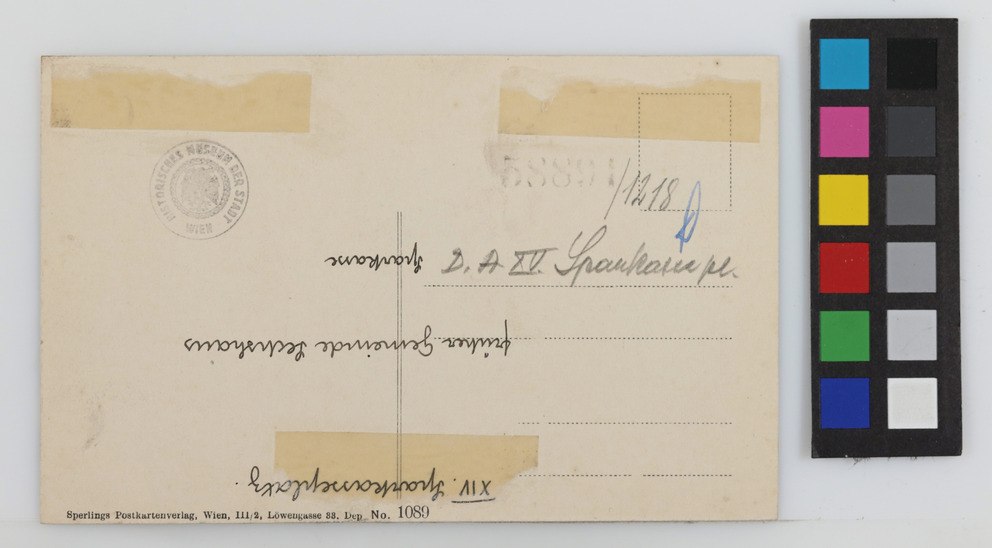 HISTORISCHES MUSEUM DER STADT WIEN
58891/1218
D. A. XV. Sparkassepl.
XIV. Sparkasseplatz.
früher Gemeinde Sechshaus
Sparkasse
Sperlings Postkartenverlag, Wien, III/2, Löwengasse 33. Dep. No. 1089